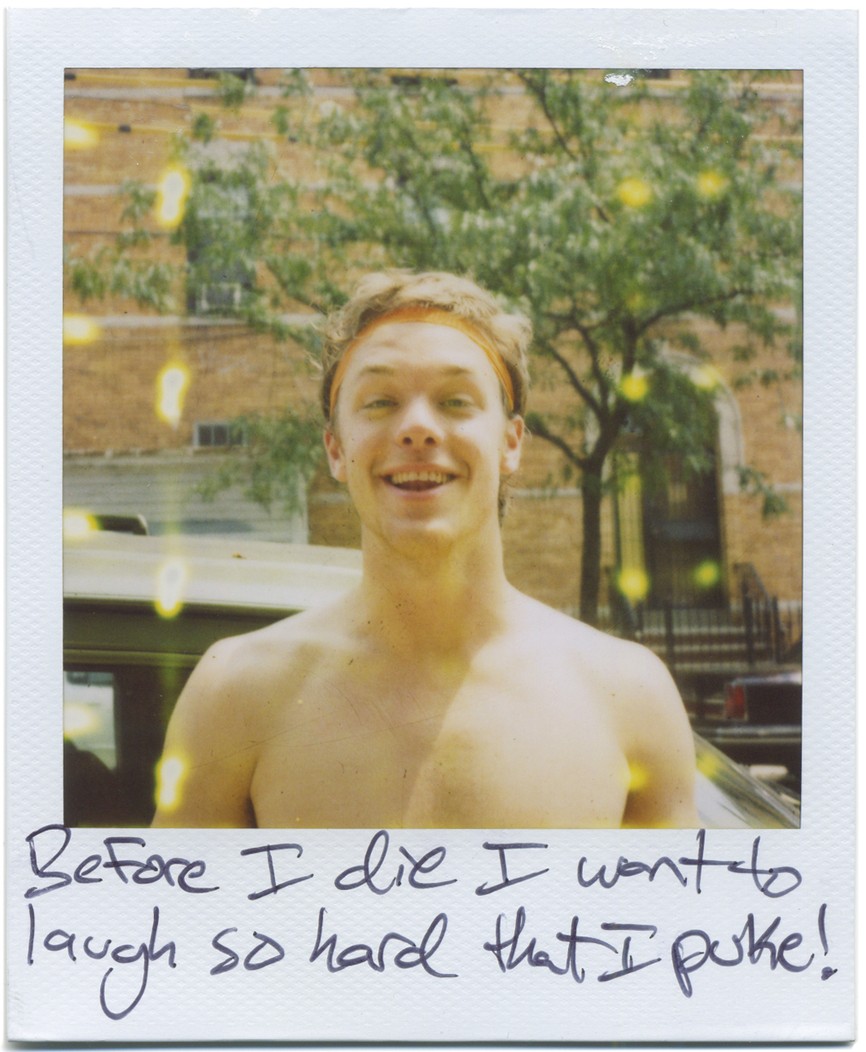 Before I die I want to
laugh so hard that I puke!